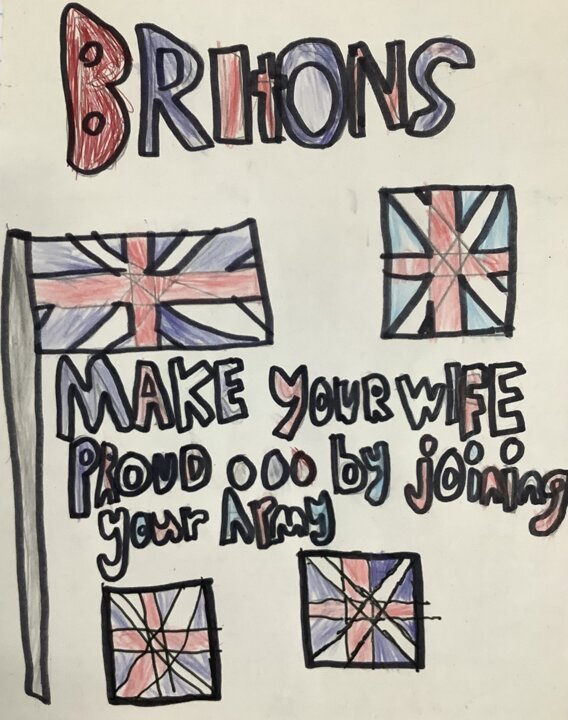 BRITONS
MAKE YOUR WIFE
PROUD ... by joining
your Army